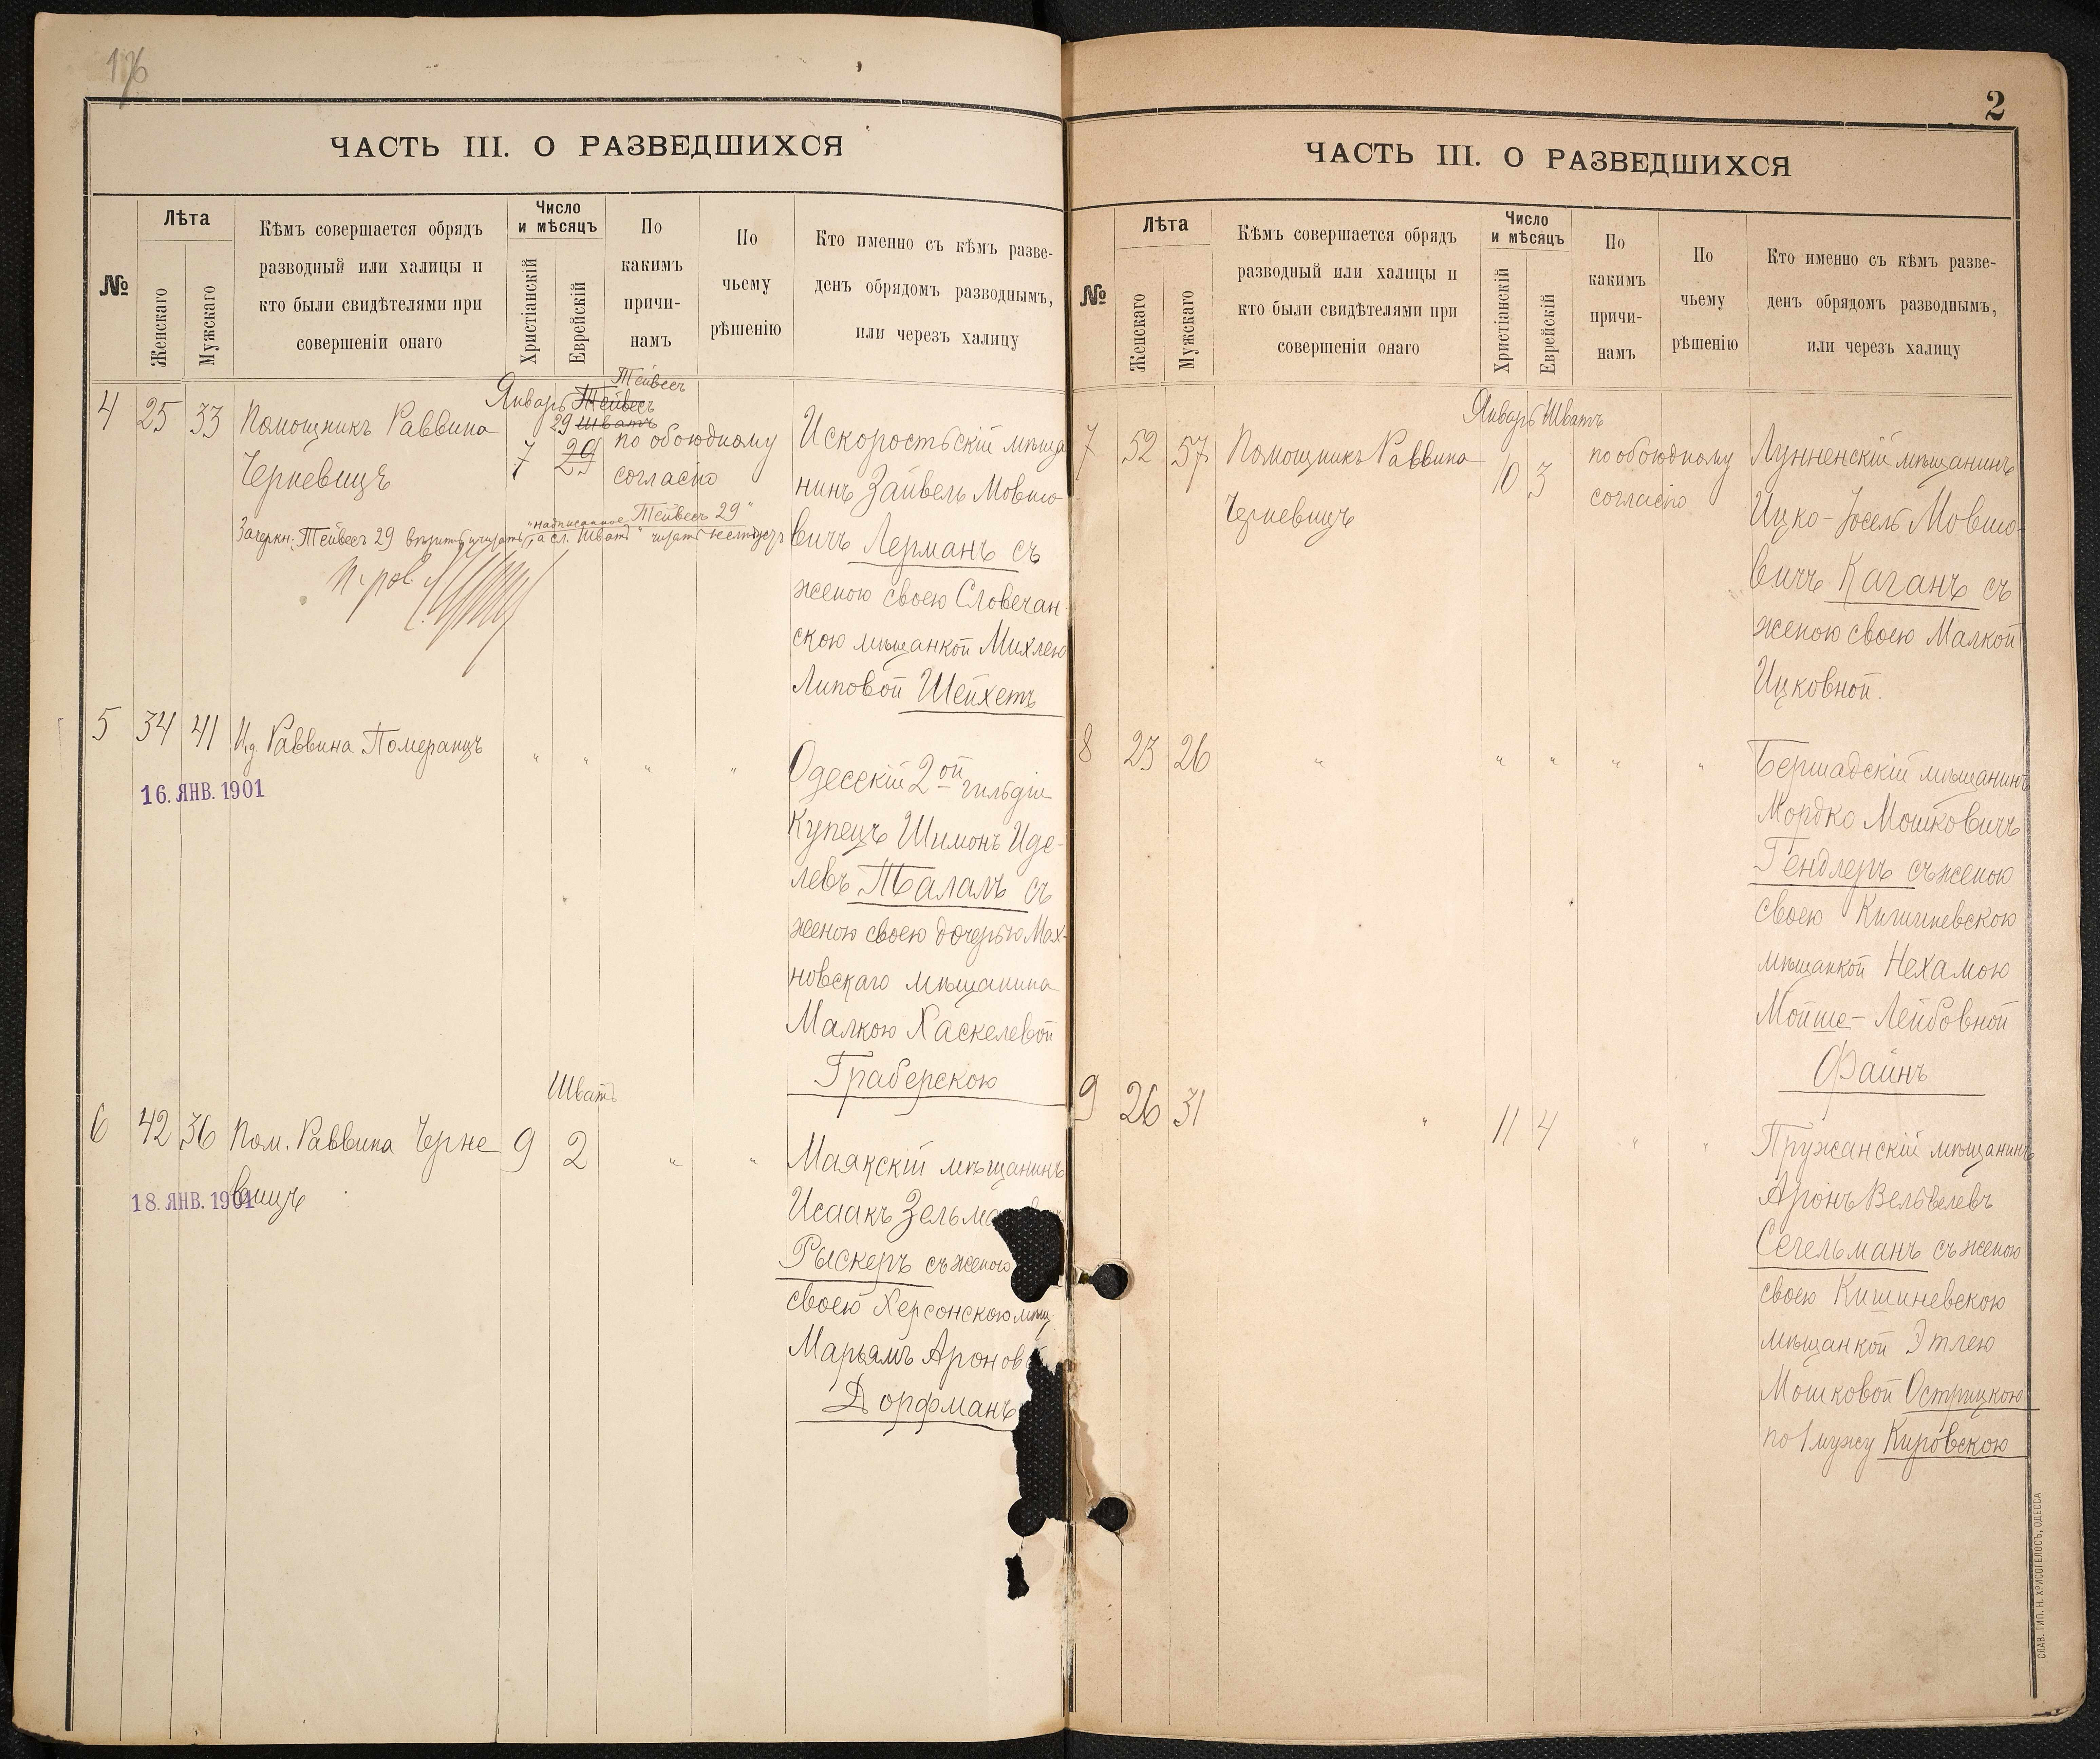 176
ЧАСТЬ III. О РАЗВЕДШИХСЯ
№
Лѣта
Женскаго
Мужскаго
Кѣмъ совершается обрядъ
разводный или халицы и
кто были свидѣтелями при
совершеніи онаго
Число
и мѣсяцъ
Христіанскій
Еврейскій
По
какимъ
причи-
намъ
По
чьему
рѣшенію
Кто именно съ кѣмъ разве-
денъ обрядомъ разводнымъ,
или черезъ халицу
Тейвесъ
Январь Тейвесъ
29 Шватъ
4 25 33 Помощникъ Раввина
Черневицъ
7 29
по обоюдному
согласію
Искоростьскій мѣща
нинъ Зайвель Мовшо-
вичъ Лерманъ съ
женою своею Словечан-
скою мѣщанкой Михлею
Липовой Шейхетъ
надписанное Тейвесъ 29"
Зачеркн. Тейвесъ 29 вѣрить а сл. Шватъ"
5 34 41 И.д. Раввина Померанцъ " " " "
16. ЯНВ. 1901
Одесскій 2ой гильдіи
Купецъ Шимонъ Иде-
левъ Талалъ съ
женою своею дочерью Мах-
новскаго мѣщанина
Малкою Хаскелевой
Граберскою
Шватъ
6 42 36 Пом. Раввина Черне
вицъ
9 2 " "
18. ЯНВ. 1901
Маякскій мѣщанинъ
Исаакъ
Рыскеръ съ женою
своею Херсонскою мѣщ.
Марьямъ
Дорфманъ
2
ЧАСТЬ III. О РАЗВЕДШИХСЯ
№
Лѣта
Женскаго
Мужскаго
Кѣмъ совершается обрядъ
разводный или халицы и
кто были свидѣтелями при
совершеніи онаго
Число
и мѣсяцъ
Христіанскій
Еврейскій
По
какимъ
причи-
намъ
По
чьему
рѣшенію
Кто именно съ кѣмъ разве-
денъ обрядомъ разводнымъ,
или черезъ халицу
Январь Шватъ
7 52 57 Помощникъ Раввина
Черневицъ
10 3
по обоюдному
согласію
Лунненскій мѣщанинъ
Ицко-Іосель Мовшо-
вичъ Каганъ съ
женою своею Малкой
Ицковной.
8 23 26 " " " " "
Бершадскій мѣщанинъ
Мордко Мошковичъ
Гендлеръ съ женою
своею Кишиневскою
мѣщанкой Нехамою
Мойше-Лейбовной
Файнъ
9 26 31 " 11 4 " "
Пружанскій мѣщанинъ
Аронъ Вельвелевъ
Сегельманъ съ женою
своею Кишиневскою
мѣщанкой Этлею
Мошковой Острицкою
по 1 мужу Кировскою
СЛАВ. ТИП. Н. ХРИСОГЕЛОСЪ, ОДЕССА